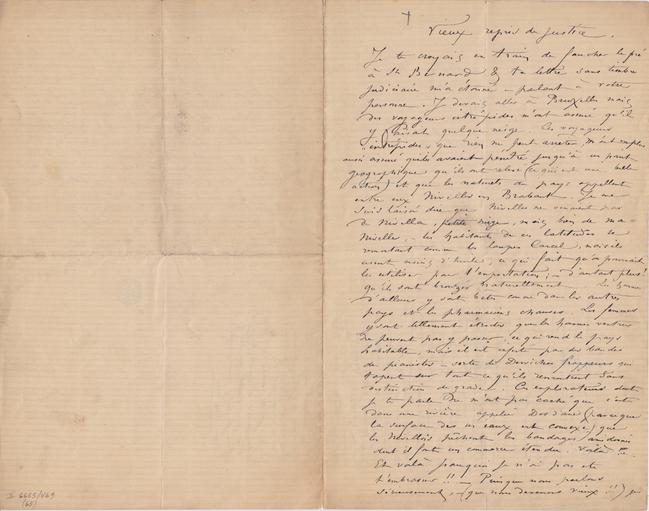 Vieux repris de justice.
Je te croyais en train de faucher le pré
à St Bernard & ta lettre sans timbre
judiciaire m'a étonné – parlant à votre
personne. Je devais aller à Bruxelles mais
des voyageurs intrépides m'ont assuré qu'il
y faisait quelque neige. Ces voyageurs
intrépides que rien ne peut arrêter, m'ont
aussi assuré qu'ils avaient pénétré jusqu'à un point
géographique qu'ils ont relevé (ce qui est une belle
action) et que les naturels du pays appellent
entre eux Nivelles en Brabant. Je me
suis laissé dire que Nivelles ne venait pas
de Nivella, petite neige, mais bien de ma-
nivelle, – les habitants de ces latitudes se
remontant comme les lampes Carcel, mais ils
usent moins d'huile, ce qui fait qu'on pourrait
les utiliser par l'exportation, – d'autant plus!
qu'ils sont bronzés naturellement. Les
d'ailleurs y sont comme dans les autres
pays et les pharmaciens chauves. Les femmes
y sont tellement étroites que les
ne peuvent pas y passer, ce qui rend le pays
habitable, mais il est infesté par des bandes
de pianistes – sorte de Derviches frappeurs qui
tapent sur tout ce qu'ils rencontrent sans
distinction de grade. – Ces explorateurs dont
je te parle ne m'ont pas caché que c'est
dans une rivière appelée Dos d'âne (parce que
la surface des eaux est convexe) que
les Nivellois pêchent les bandages
dont il font un commerce étendu. Voilà!!!
Et voilà pourquoi je n'ai pas été
t'embrasser!! – Puisque nous parlons
sérieusement, – (que nous devenons vieux!!)
S. II 6655/469
(65)